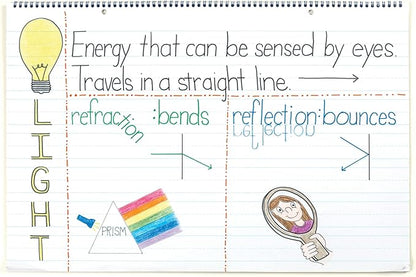 LIGHT
Energy that can be sensed by eyes.
Travels in a straight line.
refraction :bends
reflection:bounces
reflection
PRISM